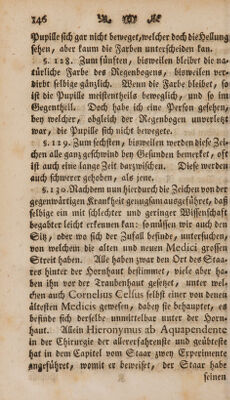 146
Pupille sich gar nicht beweget, welcher doch die Hellung
sehen, aber kaum die Farben unterscheiden kan.
§. 128. Zum fünften, bisweilen bleibet die na-
türliche Farbe des Regenbogens, bisweilen ver-
dirbt selbige gänzlich. Wenn die Farbe bleibet, so
ist die Pupille meistentheils beweglich, und so im
Gegentheil. Doch habe ich eine Person gesehen,
bey welcher, obgleich der Regenbogen unverletzt
war, die Pupille sich nicht bewegete.
§. 119. Zum sechsten, bisweilen werden diese Zei-
chen alle ganz geschwind bey Gesunden bemerket, oft
ist auch eine lange Zeit darzwischen. Diese werden
auch schwerer gehoben, als jene.
§. 130. Nachdem nun hierdurch die Zeichen von der
gegenwärtigen Krankheit genugsam ausgeführet, daß
selbige ein mit schlechter und geringer Wissenschaft
begabter leicht erkennen kan: so müssen wir auch den
Sitz, oder wo sich der Zufall befinde, untersuchen,
von welchem die alten und neuen Medici grossen
Streit haben. Alle haben zwar den Ort des Staa-
res hinter der Hornhaut bestimmet, viele aber ha-
ben ihn vor der Traubenhaut gesetzet, unter wel-
chen auch Cornelius Celsus selbst einer von denen
ältesten Medicis gewesen, dabey sie behauptet, es
befinde sich derselbe unmittelbar unter der Horn-
haut. Allein Hieronymus ab Aquapendente
in der Chirurgie der allererfahrenste und geübteste
hat in dem Capitel vom Staar zwey Experimente
angeführet, womit er beweiset, der Staar habe
seinen